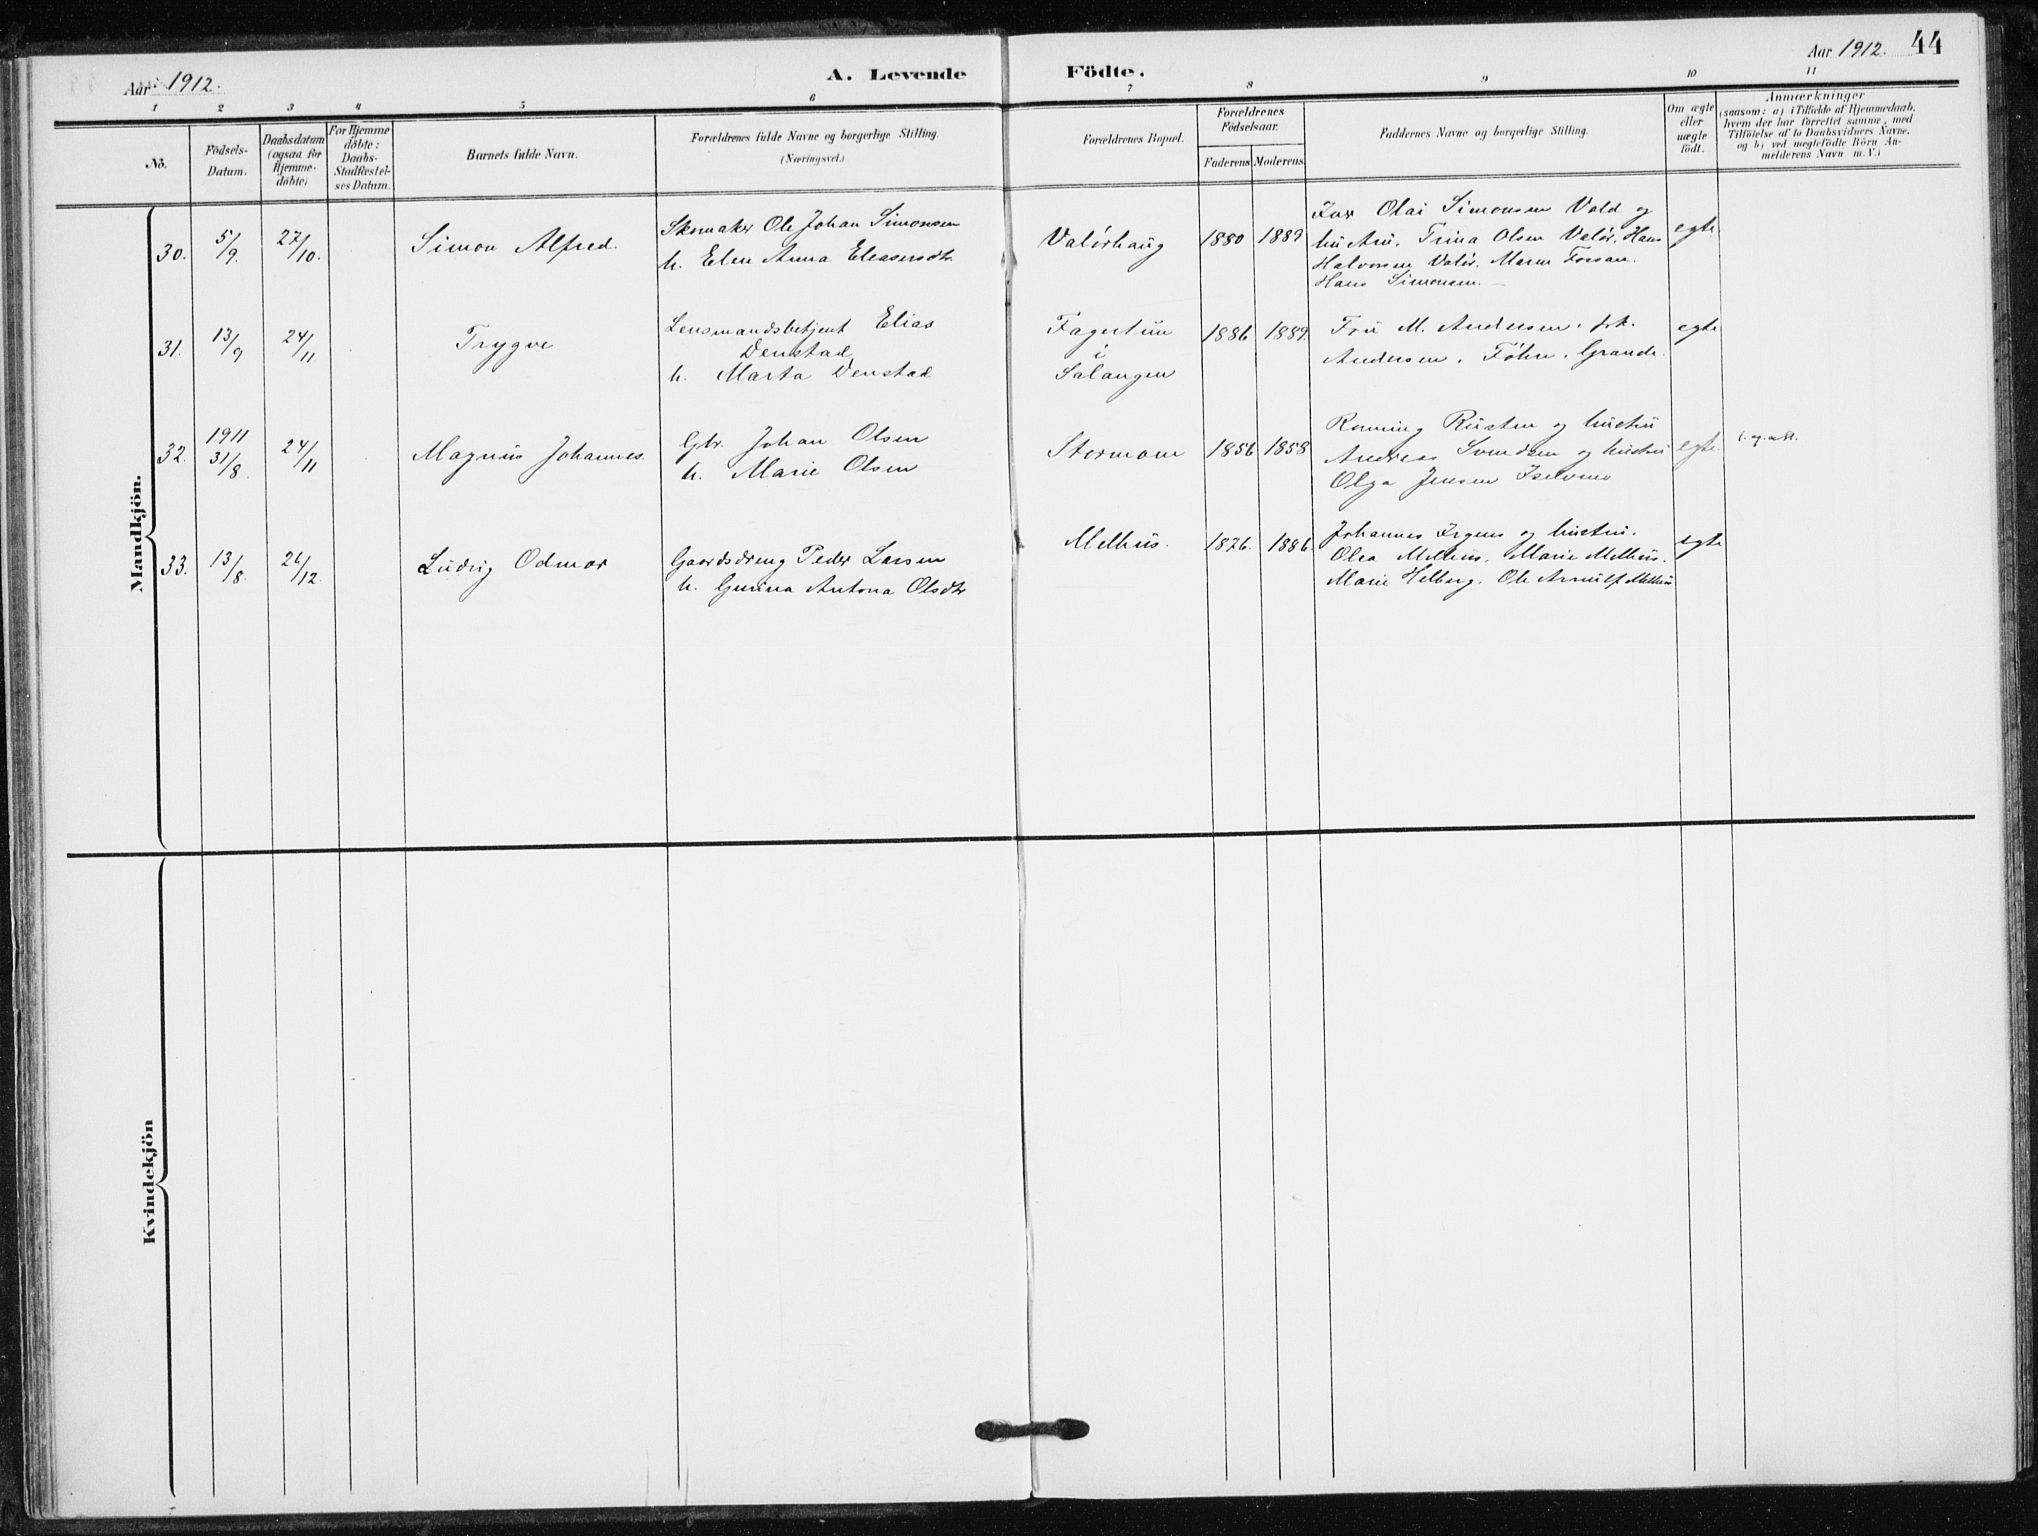 Aar 1912.
A. Levende Födte.
Aar 1912. 44
1 2 3 4 5 6 7 8 9 10 11
No.
Födsels-
Datum.
Daabsdatum
(ogsaa for
Hjemme-
döbte)
For Hjemme
döbte:
Daabs-
Stadfæstel-
ses Datum.
Barnets fulde Navn.
Forældrenes fulde Navne og borgerlige Stilling.
(Næringsvei.)
Forældrenes Bopæl.
Forældrenes
Födselsaar.
Faderens Moderens.
Faddernes Navne og borgerlige Stilling.
Om ægte
eller
uægte
födt.
Anmærkninger
(saasom: a) i Tilfælde af Hjemmedaab,
hvem der har forrettet samme, med
Tilföielse af to Daabsvidners Navne,
og b) ved uægtefödte Börn An-
melderens Navn m. V.)
Mandkjön.
30. 5/9. 27/10. Simon Alfred.
Skomaker Ole Johan Simonsen
h. Elen Anna Eleasersdtr
Valörhaug 1880 1889
Olai Simonsen Vold og
Trina Olsen Valör. Hans
Halvorsen Valör. Maren Fossan.
Hans Simonsen. —
egte
31. 13/9 24/11 Trygve
Lensmandsbetjent Elias
Denstad
h. Marta Denstad
Fagertun
i
Salangen
1886 1889.
Fru M. Andersen. frk.
Andersen. Föhn. Grande.
egte
32. 1911
31/8. 24/11 Magnus Johannes.
Gbr. Johan Olsen
h. Marie Olsen
Stormoen 1856 1858
Rusten og hustru
Andreas Svendsen og hustru
Olga Jensen Iselvmo
egte
33. 13/8. 26/12. Ludvig Odmar
Gaardsdreng Peder Larsen
h. Gurina Antona Olsdtr
Melhus. 1876. 1886.
Johannes Irgens og hustru.
Olea Melhus. Marie Melhus.
Marie Helberg. Ole Arnulf Melhus
egte
Kvindekjön